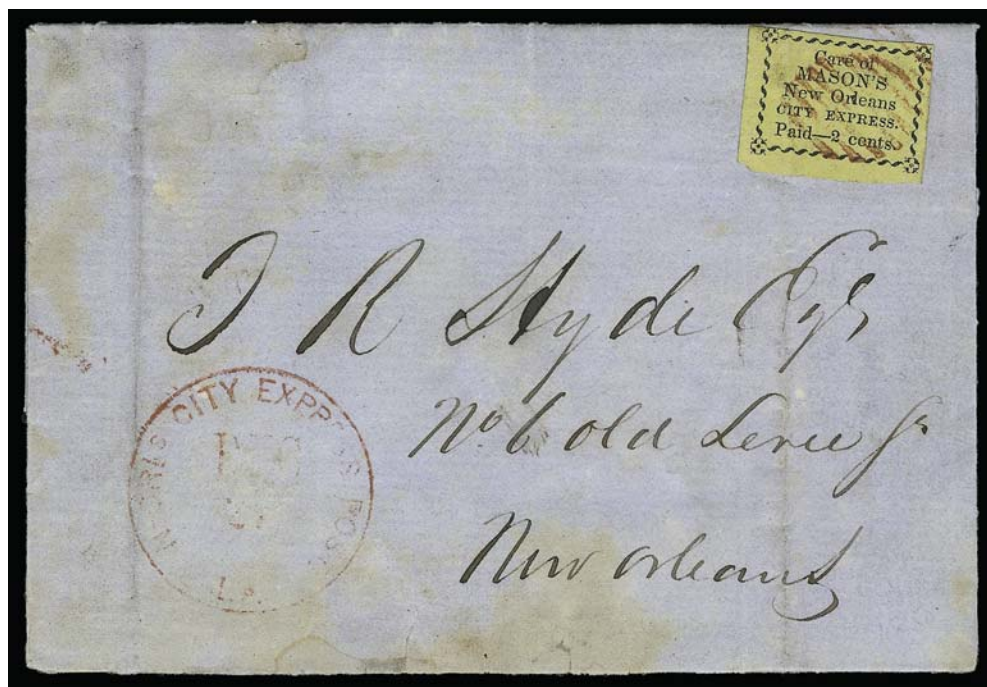 Care of
MASON'S
New Orleans
CITY EXPRESS.
Paid—2 cents.
J R Hyde Esqr
No 6 old Levee St
New Orleans
CITY EXPR
La.